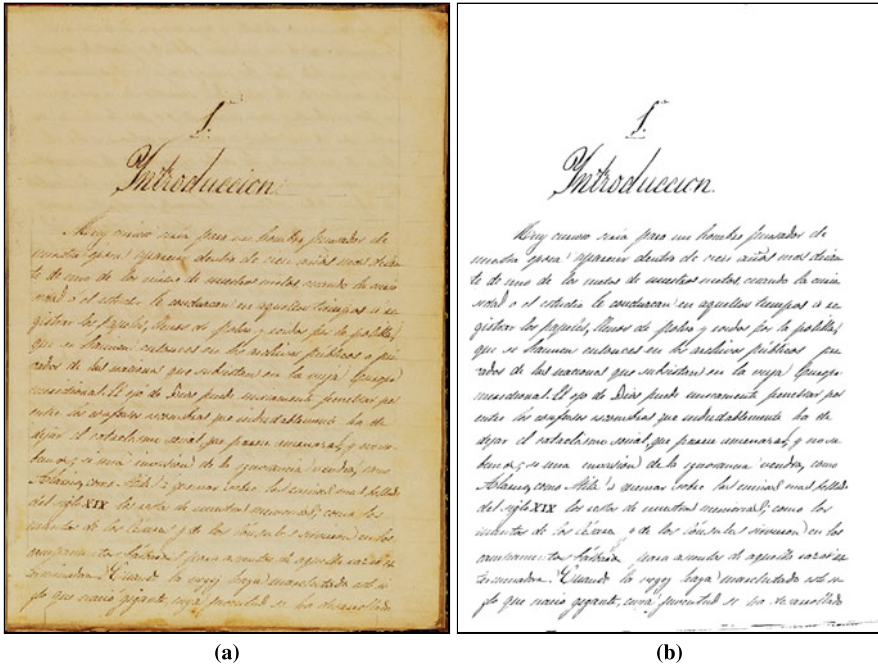 1.
Introduccion.
Muy curioso seria para un hombre pensador de
nuestra época aparecer dentro de cien años mas
te de uno de los nietos de nuestros nietos, cuando la curio
sidad o el estudio le conduzcan en aquellos tiempos á re
gistrar los papeles, llenos de polvo y roidos por la polilla,
que se hallen entonces en los archivos públicos o pri
vados de las naciones que subsistan en la vieja Europa
meridional. El ojo de Dios puede unicamente penetrar por
entre los confusos escombros que indudablemente ha de
dejar el cataclismo social, que parece amenazar, y no sa
bemos si una invasion de la ignorancia vendra, como
como Atila á quemar sobre las mas bellas
del siglo XIX los restos de nuestras memorias; como los
mantos de los Césares y de los Cónsules sirvieron en los
campamentos para asientos de aquella raza ex
terminadora. Cuando la vejez haya marchitado este si
glo que nació gigante, cuya juventud se ha desarrollado
(a)
1.
Introduccion.
Muy curioso seria para un hombre pensador de
nuestra época aparecer dentro de cien años mas
te de uno de los nietos de nuestros nietos, cuando la curio
sidad o el estudio le conduzcan en aquellos tiempos á re
gistrar los papeles, llenos de polvo y roidos por la polilla,
que se hallen entonces en los archivos públicos pri
vados de las naciones que subsistan en la vieja Europa
meridional. El ojo de Dios puede unicamente penetrar por
entre los confusos escombros que indudablemente ha de
dejar el cataclismo social, que parece amenazar, y no sa
bemos si una invasion de la ignorancia vendra, como
como Atila á quemar sobre las mas bellas
del siglo XIX los restos de nuestras memorias; como los
mantos de los Césares y de los Cónsules sirvieron en los
campamentos para asientos de aquella raza ex
terminadora. Cuando la vejez haya marchitado este si
glo que nació gigante, cuya juventud se ha desarrollado
(b)